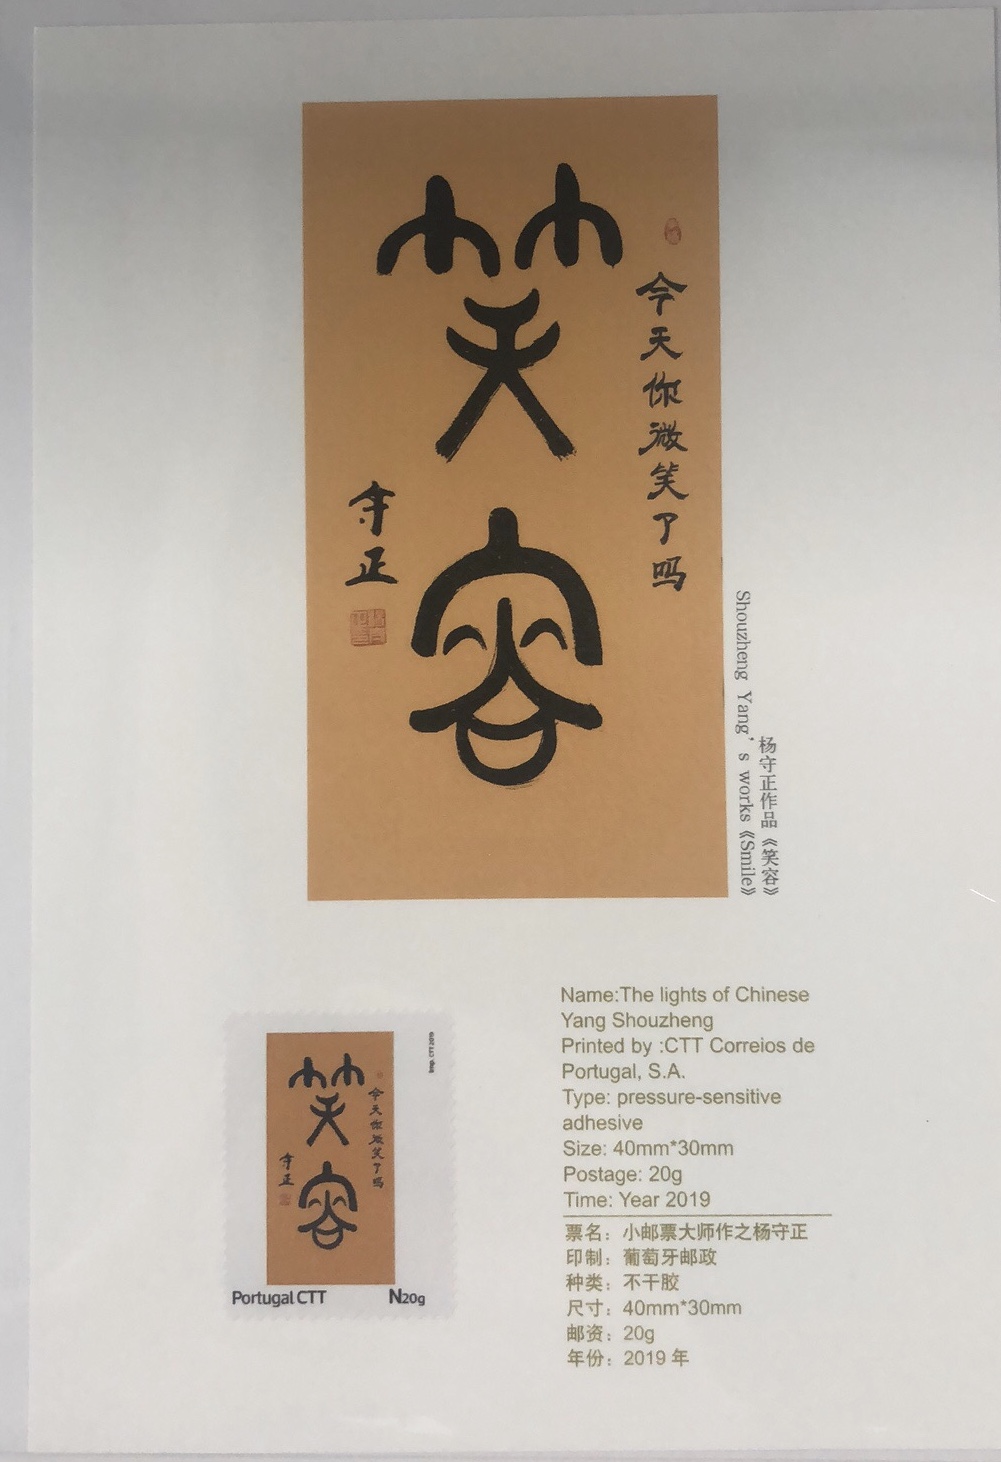 笑容
今天你微笑了吗
守正
杨守正作品《笑容》
Shouzheng Yang’s works《Smile》
Name:The lights of Chinese
Yang Shouzheng
Printed by :CTT Correios de
Portugal, S.A.
Type: pressure-sensitive
adhesive
Size: 40mm*30mm
Postage: 20g
Time: Year 2019
票名：小邮票大师作之杨守正
印制：葡萄牙邮政
种类：不干胶
尺寸：40mm*30mm
邮资：20g
年份：2019 年
笑容
今天你微笑了吗
守正
CTT 2019
Portugal CTT
N20g